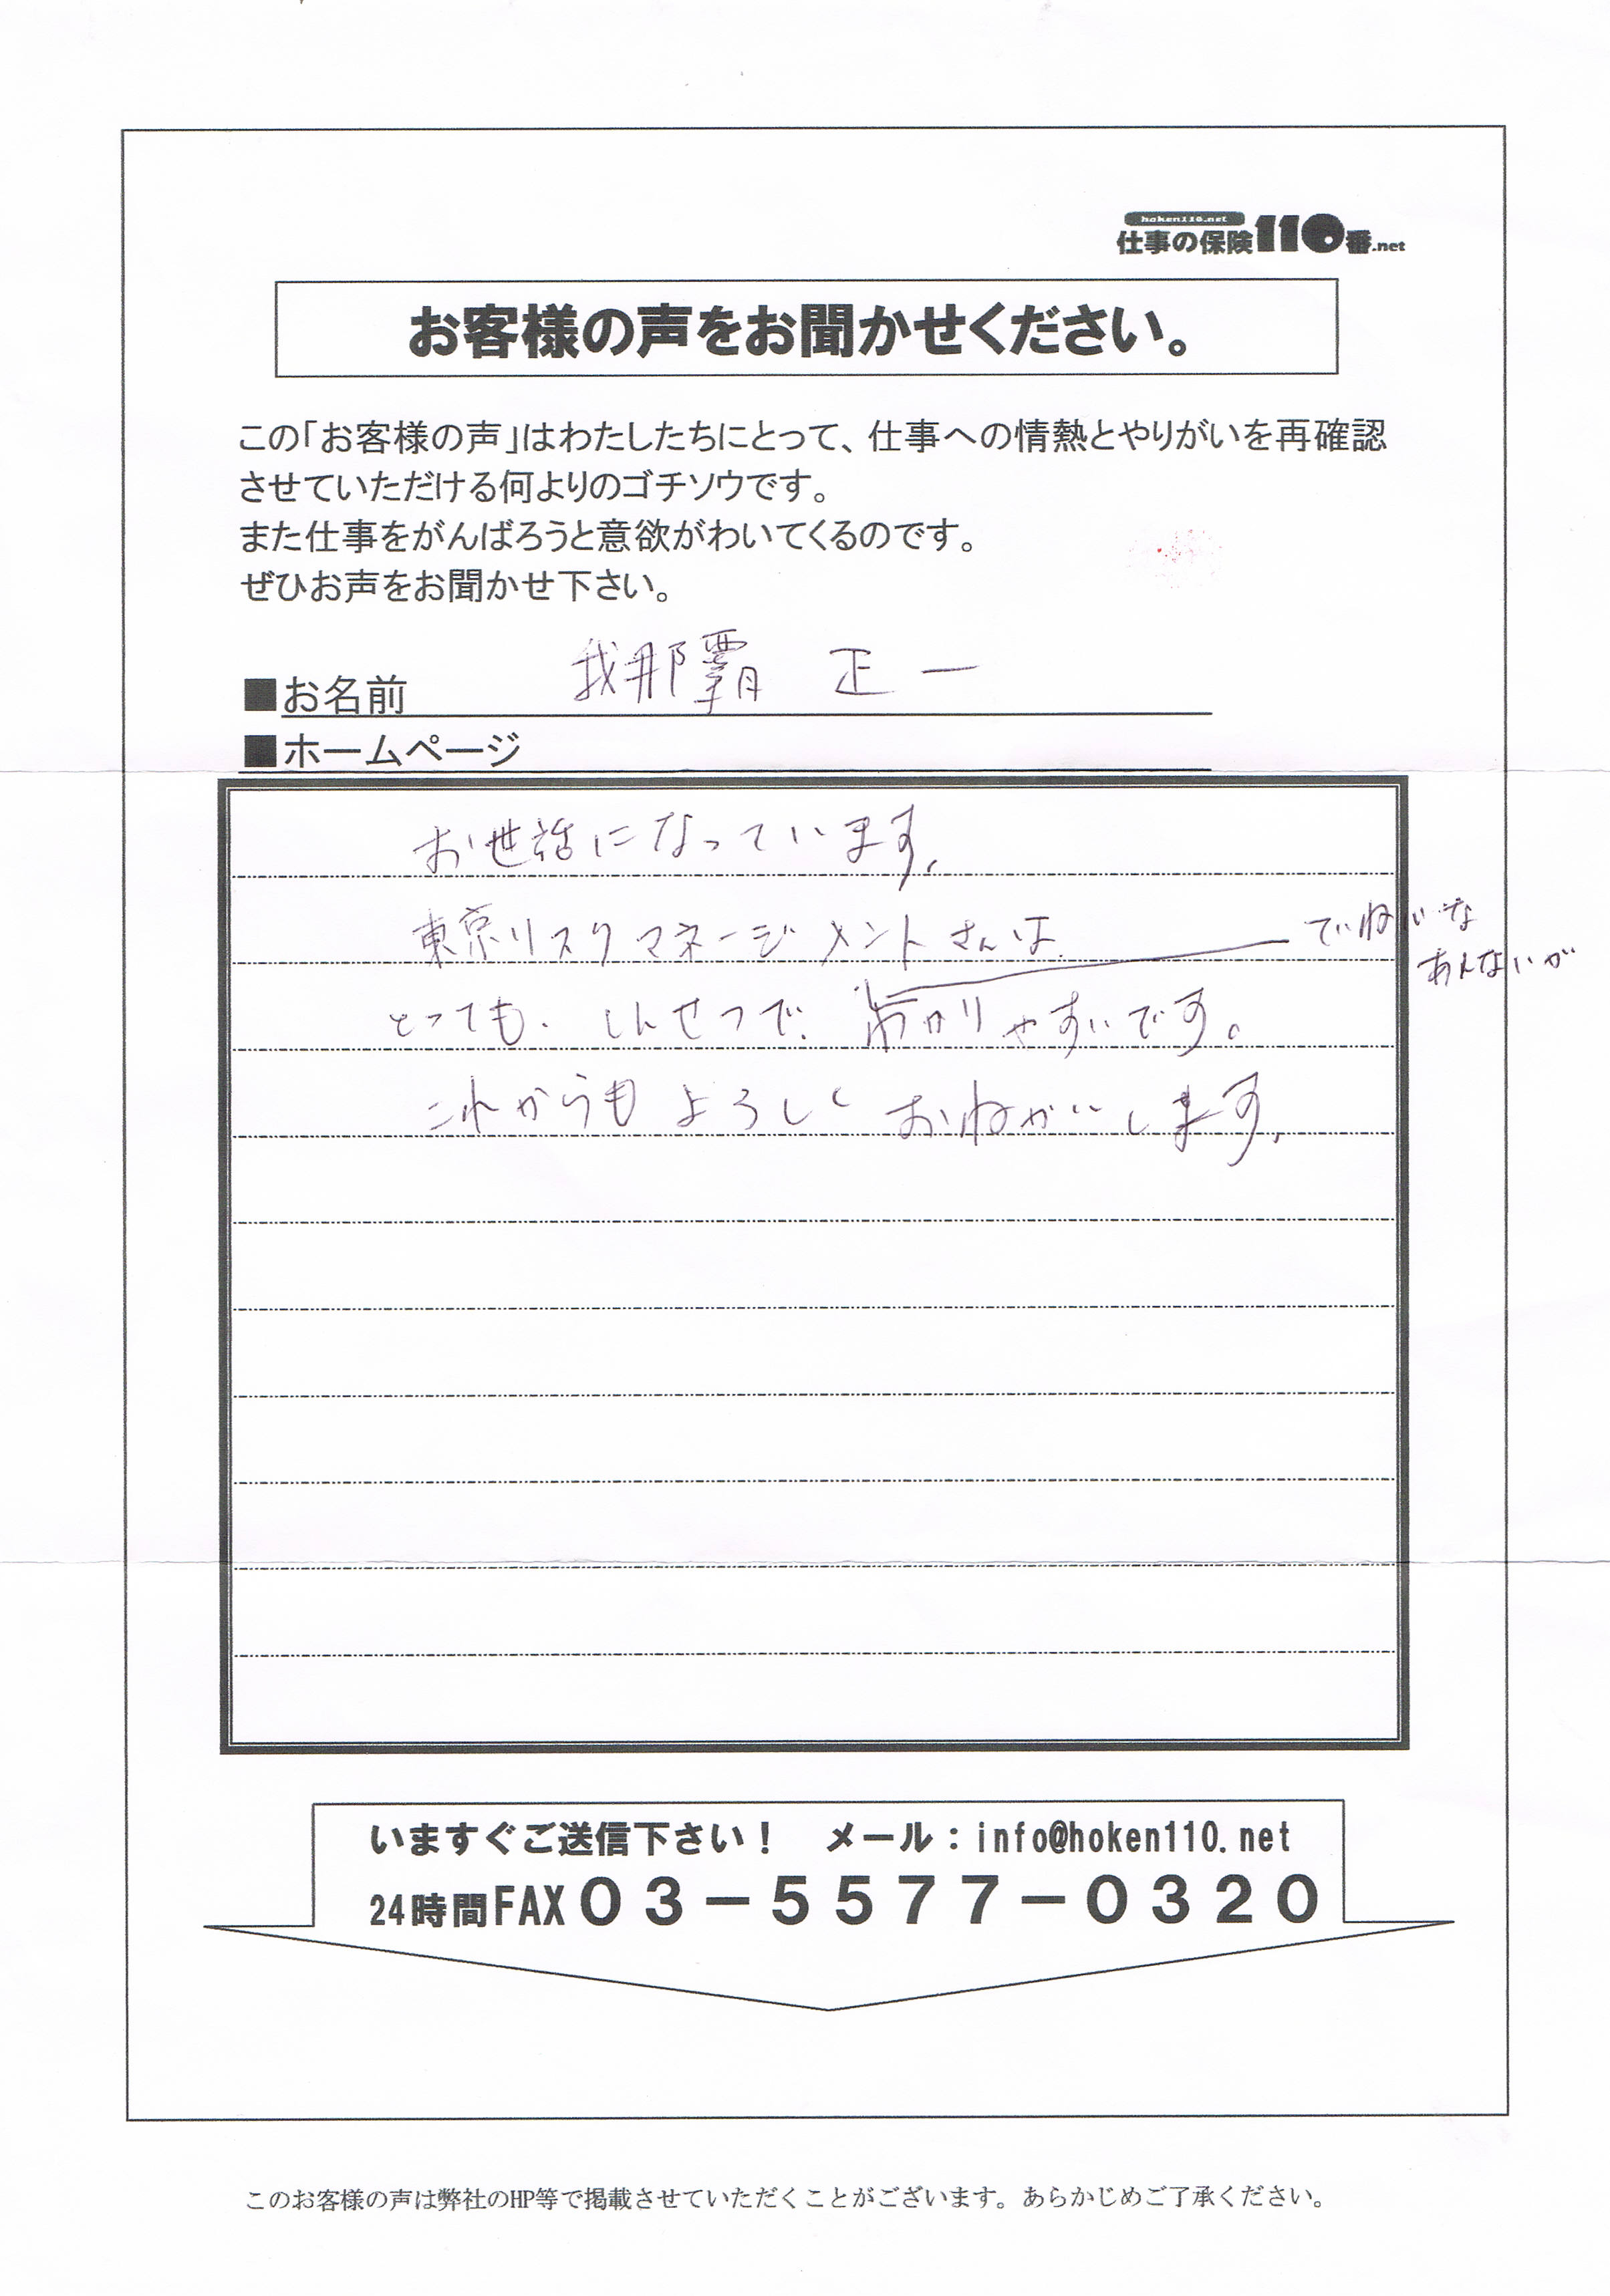 hoken110.net
仕事の保険110番.net
お客様の声をお聞かせください。
この「お客様の声」はわたしたちにとって、仕事への情熱とやりがいを再確認
させていただける何よりのゴチソウです。
また仕事をがんばろうと意欲がわいてくるのです。
ぜひお声をお聞かせ下さい。
■お名前 我那覇 正一
■ホームページ
お世話になっています。
東京リスクマネージメントさんは、
ていねいな
あんないが
とっても、しんせつで、わかりやすいです。
これからもよろしくおねがいします。
いますぐご送信下さい！ メール：info@hoken110.net
24時間FAX０３－５５７７－０３２０
このお客様の声は弊社のHP等で掲載させていただくことがございます。あらかじめご了承ください。